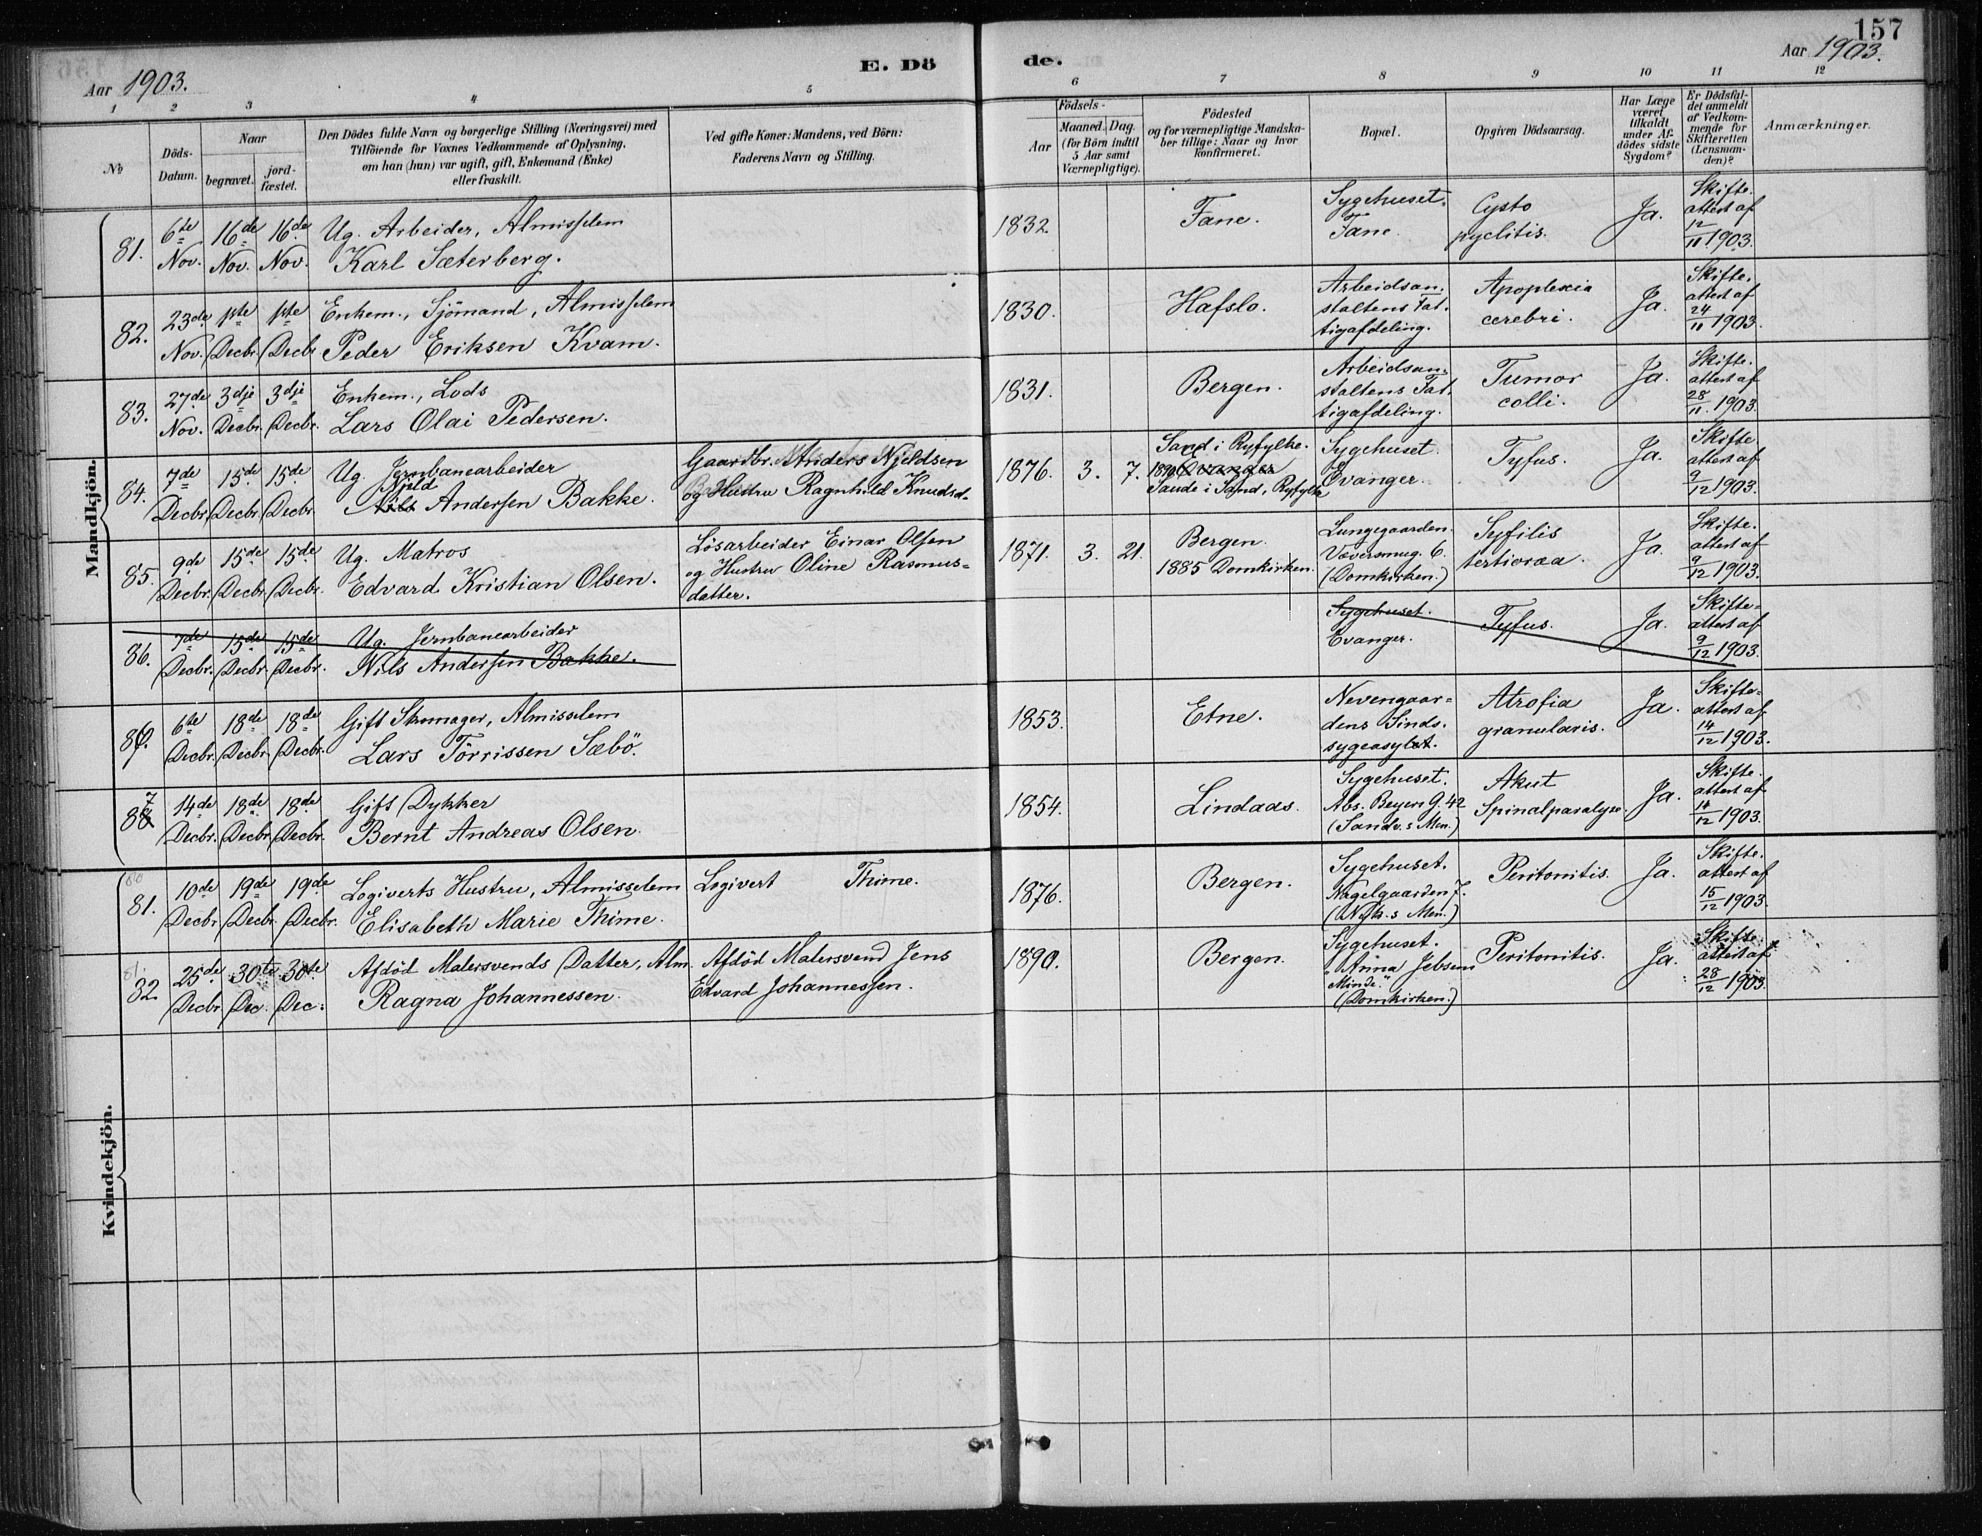 157
Aar 1903.
E. Dö
de.
Aar 1903.
1 2 3 4 5 6 7 8 9 10 11 12
No
Döds-
Datum.
Naar
begravet.
jord-
fæstet.
Den Dödes fulde Navn og borgerlige Stilling (Næringsvei) med
Tilföiende for Voxnes Vedkommende af Oplysning,
om han (hun) var ugift, gift, Enkemand (Enke)
eller fraskilt.
Ved gifte Koner: Mandens, ved Börn:
Faderens Navn og Stilling.
Födsels-
Aar
Maaned. Dag.
(for Börn indtil
5 Aar samt
Værnepligtige).
Födested
og for værnepligtige Mandska-
ber tillige: Naar og hvor
konfirmeret.
Bopæl.
Opgiven Dödsaarsag.
Har Læge
været
tilkaldt
under Af-
dödes sidste
Sygdom?
Er Dödsfal-
det anmeldt
af Vedkom-
mende for
Skifteretten
(Lensman-
den)?
Anmærkninger.
Mandkjön.
81.
6te
Nov.
16de
Nov.
16de
Nov.
Ug. Arbeider, Almisselem
Karl Sæterberg.
1832
Fane.
Sygehuset.
Fane.
Cysto
pyelitis.
Ja.
Skifte.
attest af
12/11 1903.
82.
23de
Nov.
1ste
Decbr.
1ste
Decbr.
Enkem., Sjömand, Almisselem
Peder Eriksen Kvam.
1830.
Hafslo.
Arbeidsan.
staltens Fat.
tigafdeling.
Apoplexia
cerebri.
Ja.
Skifte.
attest af
24/11 1903.
83.
27de
Nov.
3dje
Decbr.
3dje
Decbr.
Enkem., Lods
Lars Olai Pedersen.
1831.
Bergen.
Arbeidsan.
staltens Fat.
tigafdeling.
Tumor
colli.
Ja.
Skifte.
attest af
28/11 1903.
84.
7de
Decbr.
15de
Decbr.
15de
Decbr.
Ug. Jernbanearbeider
Njeld
Nils Andersen Bakke.
Gaardbr. Anders Njeldsen
og Hustru Ragnhild Knudsd.
1876. 3. 7.
Sand i Ryfylke.
1890 Evanger
Sande i Sand, Ryfylke
Sygehuset
Evanger.
Tyfus.
Ja.
Skifte
attest af
9/12 1903.
85.
9de
Decbr.
15de
Decbr.
15de
Decbr.
Ug. Matros
Edvard Kristian Olsen.
Løsarbeider Einar Olsen
og Hustru Oline Rasmus=
datter.
1871. 3. 21.
Bergen.
1885 Domkirken.
Lungegaarden.
Væversmug. 6.
(Domkirken.)
Syfilis
tertioraa.
Ja.
Skifte.
attest af
9/12 1903.
86.
7de
Decbr.
15de
Decbr.
15de
Decbr.
Ug. Jernbanearbeider
Nils Andersen Bakke.
Sygehuset.
Evanger.
Tyfus.
Ja.
Skifte=
attest af
9/12 1903.
86.
6te
Decbr.
18de
Decbr.
18de
Decbr.
Gift Skomager, Almisselem
Lars Törrissen Sæbö.
1853.
Etne.
Nevengaar=
dens Sinds.
sygeasylet.
Atrofia
granularis.
Ja.
Skifte=
attest af
14/12 1903.
7
88
14de
Decbr.
18de
Decbr.
18de
Decbr.
Gift Dykker
Bernt Andreas Olsen.
1854.
Lindaas.
Sygehuset.
Abs. Beyers G. 42
(Sandv.s Men.)
Akut
Spinalparalyse.
Ja.
Skifte.
attest af
14/12 1903.
Kvindekjön.
80
81.
10de
Decbr.
19de
Decbr.
19de
Decbr.
Logiverts Hustru, Almisselem
Elisabeth Marie Thime.
Logivert Thime.
1876.
Bergen.
Sygehuset.
Nagelgaarden 7.
(Nyk.s Men.)
Peritonitis.
Ja.
Skifte.
attest af
15/12 1903.
81.
82
25de
Decbr.
30te
Dec.
30te
Dec:
Afdöd Malersvends Datter, Alm.
Ragna Johannessen.
Afdöd Malersvend Jens
Edvard Johannessen.
1890.
Bergen.
Sygehuset.
"Anna Jebsens
Minde."
(Domkirken.)
Peritonitis.
Ja.
Skifte.
attest af
28/12 1903.